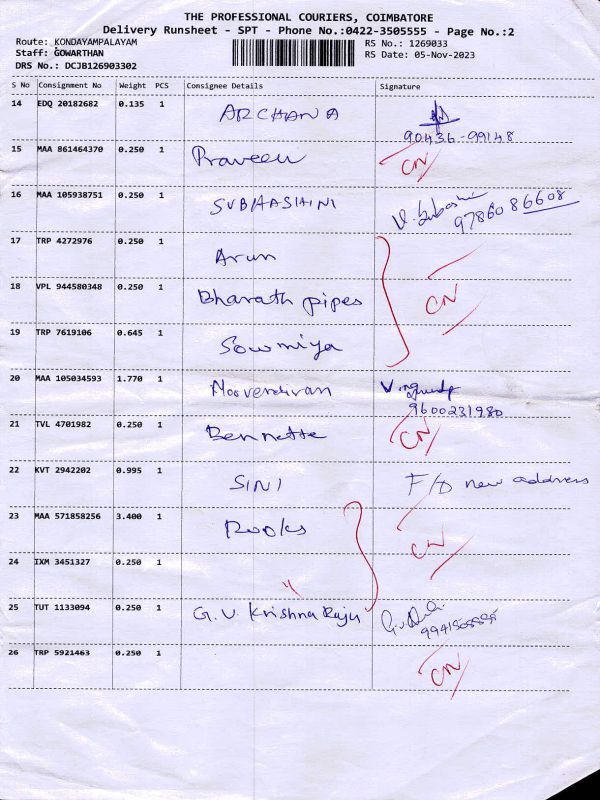 THE PROFESSIONAL COURIERS, COIMBATORE
Delivery Runsheet - SPT - Phone No.:0422-3505555 - Page No.:2
Route: KONDAYAMPALAYAM RS No.: 1269033
Staff: GOWARTHAN RS Date: 05-Nov-2023
DRS No.: DCJB126903302
S No Consignment No Weight PCS Consignee Details Signature
14 EDQ 20182682 0.135 1 ARCHANA
90436-99148
15 MAA 861464370 0.250 1 Praveen CN
16 MAA 105938751 0.250 1 SUBHASHINI
9786086608
17 TRP 4272976 0.250 1 Arun
18 VPL 944580348 0.250 1 Bharath pipes CN
19 TRP 7619106 0.645 1 Sowmiya
20 MAA 105034593 1.770 1 Moovendiran
9600231980
21 TVL 4701982 0.250 1 Bennette CN
22 KVT 2942202 0.995 1 SINI F/D new address
23 MAA 571858256 3.400 1 Rooks
CN
24 IXM 3451327 0.250 1
25 TUT 1133094 0.250 1 G.V Krishna Raju
26 TRP 5921463 0.250 1 CN